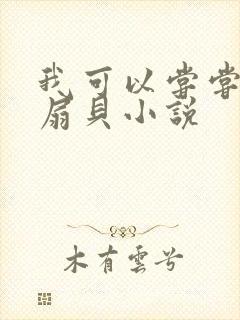 我可以嘗嘗
扇貝小說
木有雲兮